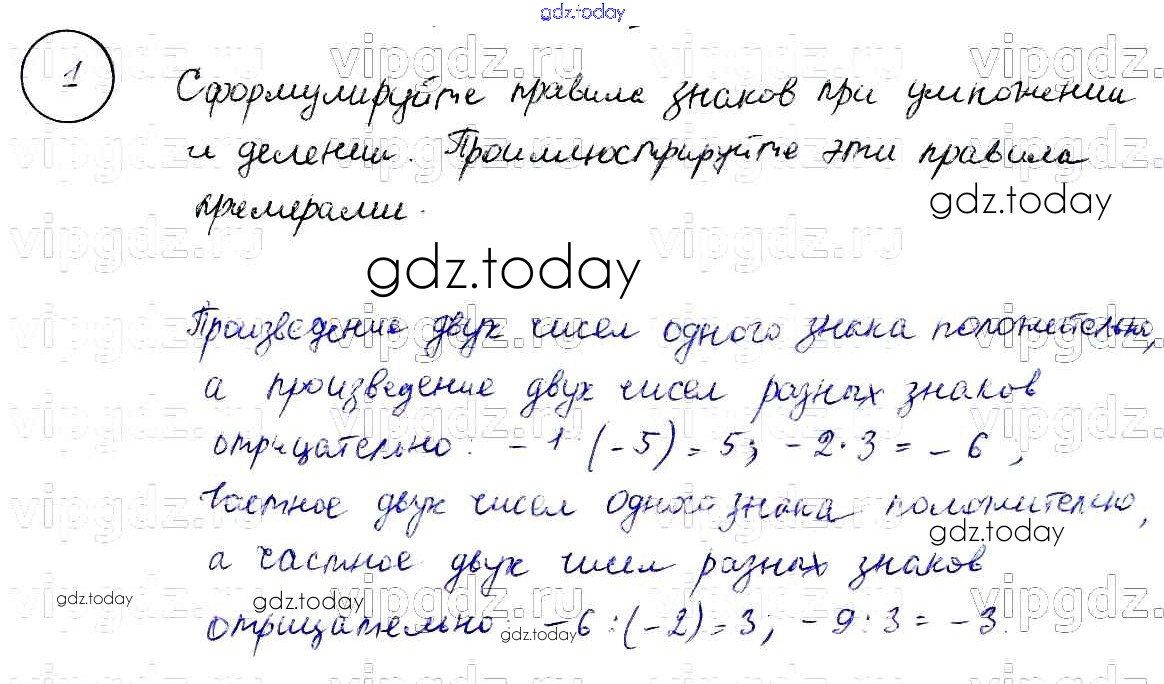 gdz.today
1
Сформулируйте правила знаков при умножении
и делении. Проиллюстрируйте эти правила
примерами.
gdz.today
gdz.today
Произведение двух чисел одного знака положительно,
а произведение двух чисел разных знаков
отрицательно: -1·(-5)=5; -2·3=-6,
Частное двух чисел одного знака положительно,
gdz.today
а частное двух чисел разных знаков
gdz.today
gdz.today
отрицательно: -6:(-2)=3; -9:3=-3.
gdz.today